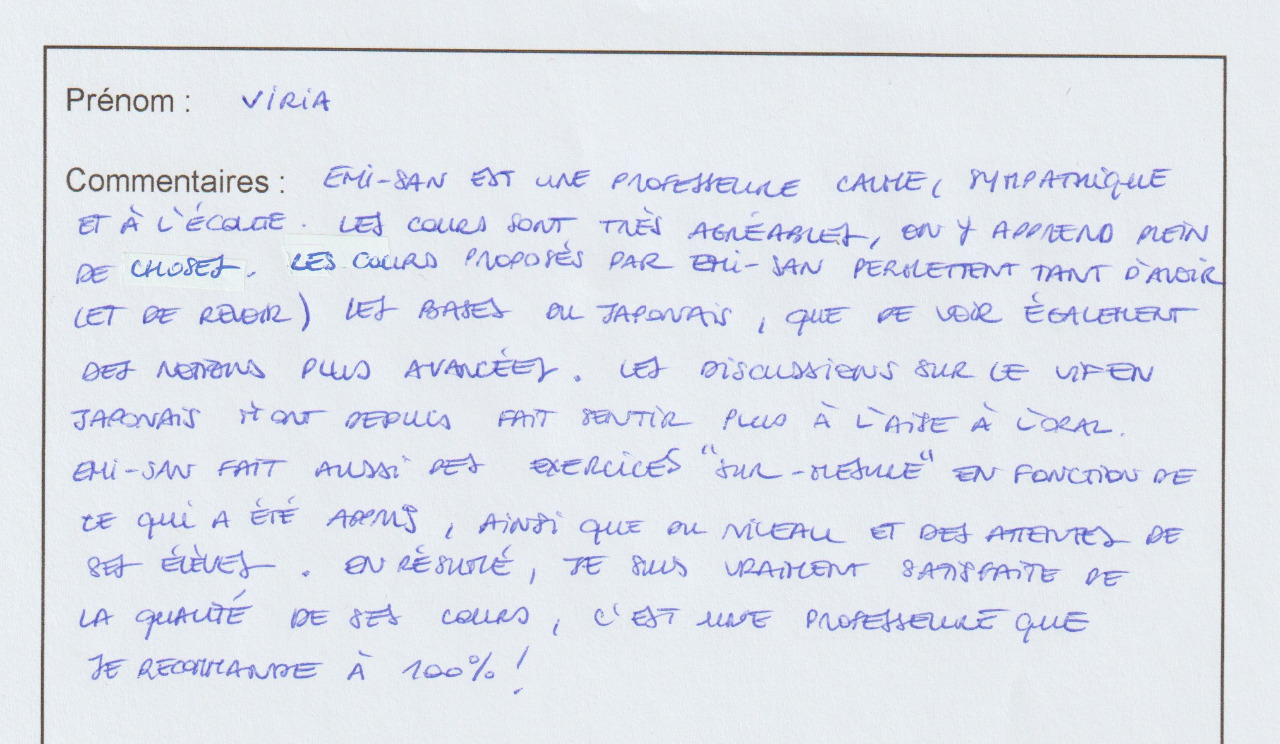 Prénom : VIRIA
Commentaires : EMI-SAN EST UNE PROFESSEURE CALME, SYMPATHIQUE
ET À L'ÉCOUTE. LES COURS SONT TRÈS AGRÉABLES, ON Y APPREND PLEIN
DE CHOSES. LES COURS PROPOSÉS PAR EMI-SAN PERMETTENT TANT D'AVOIR
(ET DE REVOIR) LES BASES DU JAPONAIS, QUE DE VOIR ÉGALEMENT
DES NOTIONS PLUS AVANCÉES. LES DISCUSSIONS SUR LE VIF EN
JAPONAIS M'ONT DEPUIS FAIT SENTIR PLUS À L'AISE À L'ORAL.
EMI-SAN FAIT AUSSI DES EXERCICES "SUR-MESURE" EN FONCTION DE
CE QUI A ÉTÉ APPRIS, AINSI QUE DU NIVEAU ET DES ATTENTES DE
SES ÉLÈVES. EN RÉSUMÉ, JE SUIS VRAIMENT SATISFAITE DE
LA QUALITÉ DE SES COURS, C'EST UNE PROFESSEURE QUE
JE RECOMMANDE À 100% !